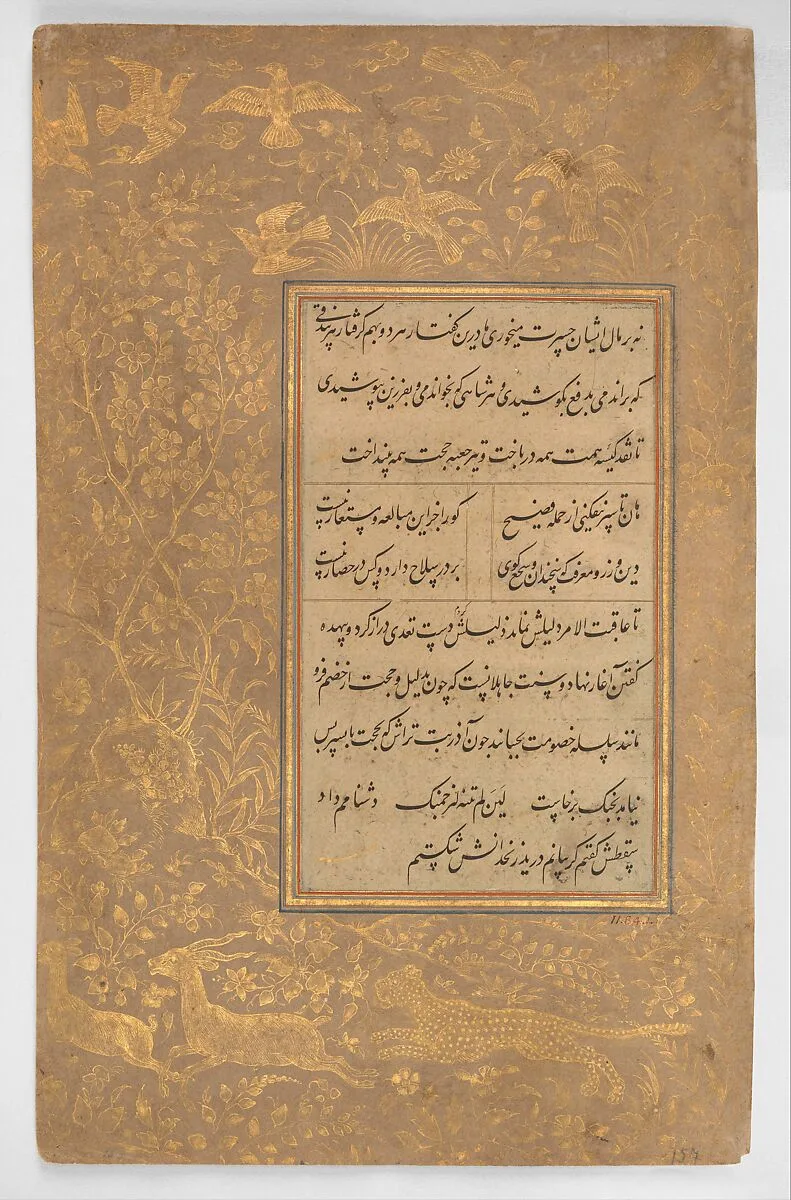 نه بر مال ایشان حسرت میخوری ما درین گفتار هر دو بهم گرفتار هر بیدقی
که براندمی بدفع بکوشیدی و هر شاهی که بخواندمی و بفرزین بپوشیدی
تا نقد کیسه همت همه درباخت و تیر جعبه حجت همه بینداخت
هان تا سپر نیفکنی از حمله فصیح کورا جز این مبالغه و مستعار نیست
دین ورز و معرفت که سخندان و سجع گوی بر در سلاح دارد و کس در حصار نیست
تا عاقبت الامر دلیلش نماند ذلیلش کردم دست تعدی دراز کرد و بیهده
گفتن آغاز نهاد و سنت جاهلانست که چون بدلیل و حجت از خصم فرو
مانند سلسله خصومت بجنبانند چون آذر بت تراش که بحجت با پسر بس
نیامد بجنگ برخاست لئن لم تنته لارجمنک دشنامم داد
سقطش گفتم گریبانم درید زنخدانش شکستم
157